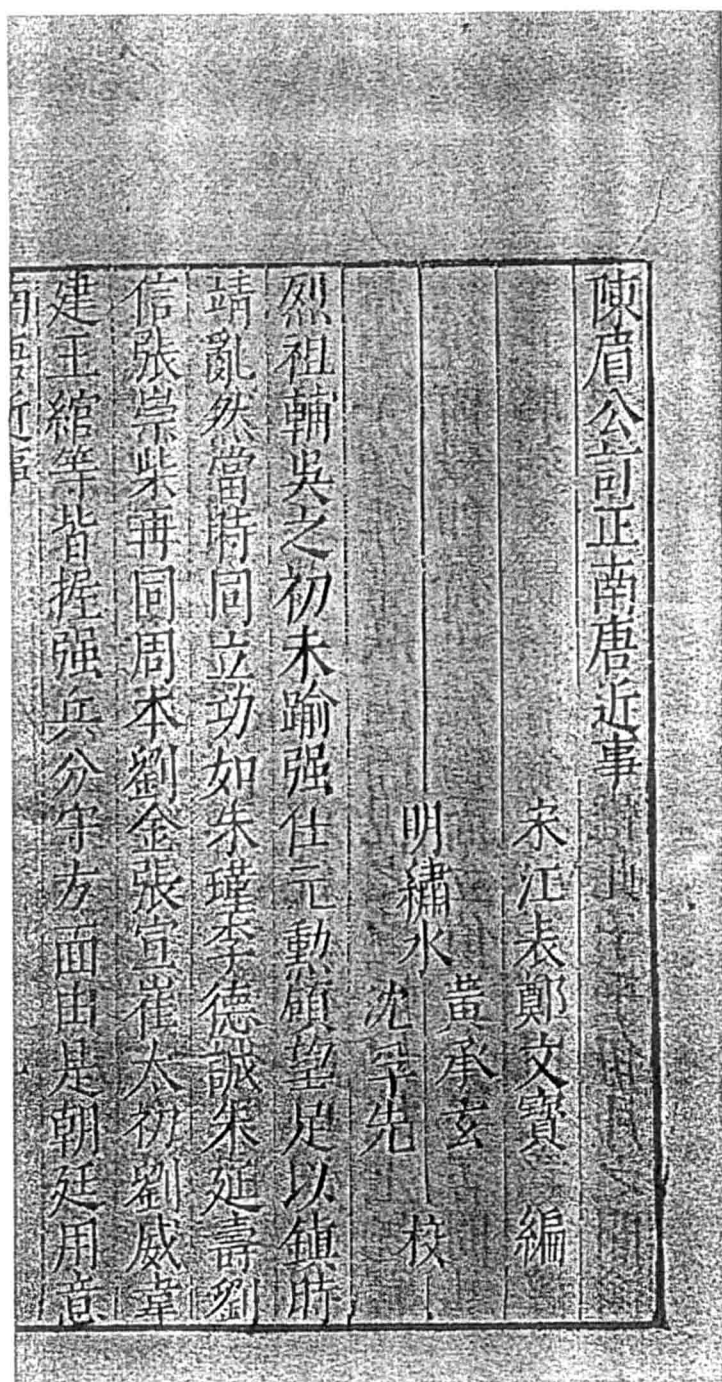 陳眉公訂正南唐近事
宋江表鄭文寶 編
明繡水 黃承玄 校
沈孚先
烈祖輔吳之初未踰强仕元勲碩望足以鎮時
靖亂然當時同立功如朱瑾李德誠朱延壽劉
信張崇柴再同周本劉金張宣崔太初劉威韋
建王綰等皆握强兵分守方面由是朝廷用意
南唐近事